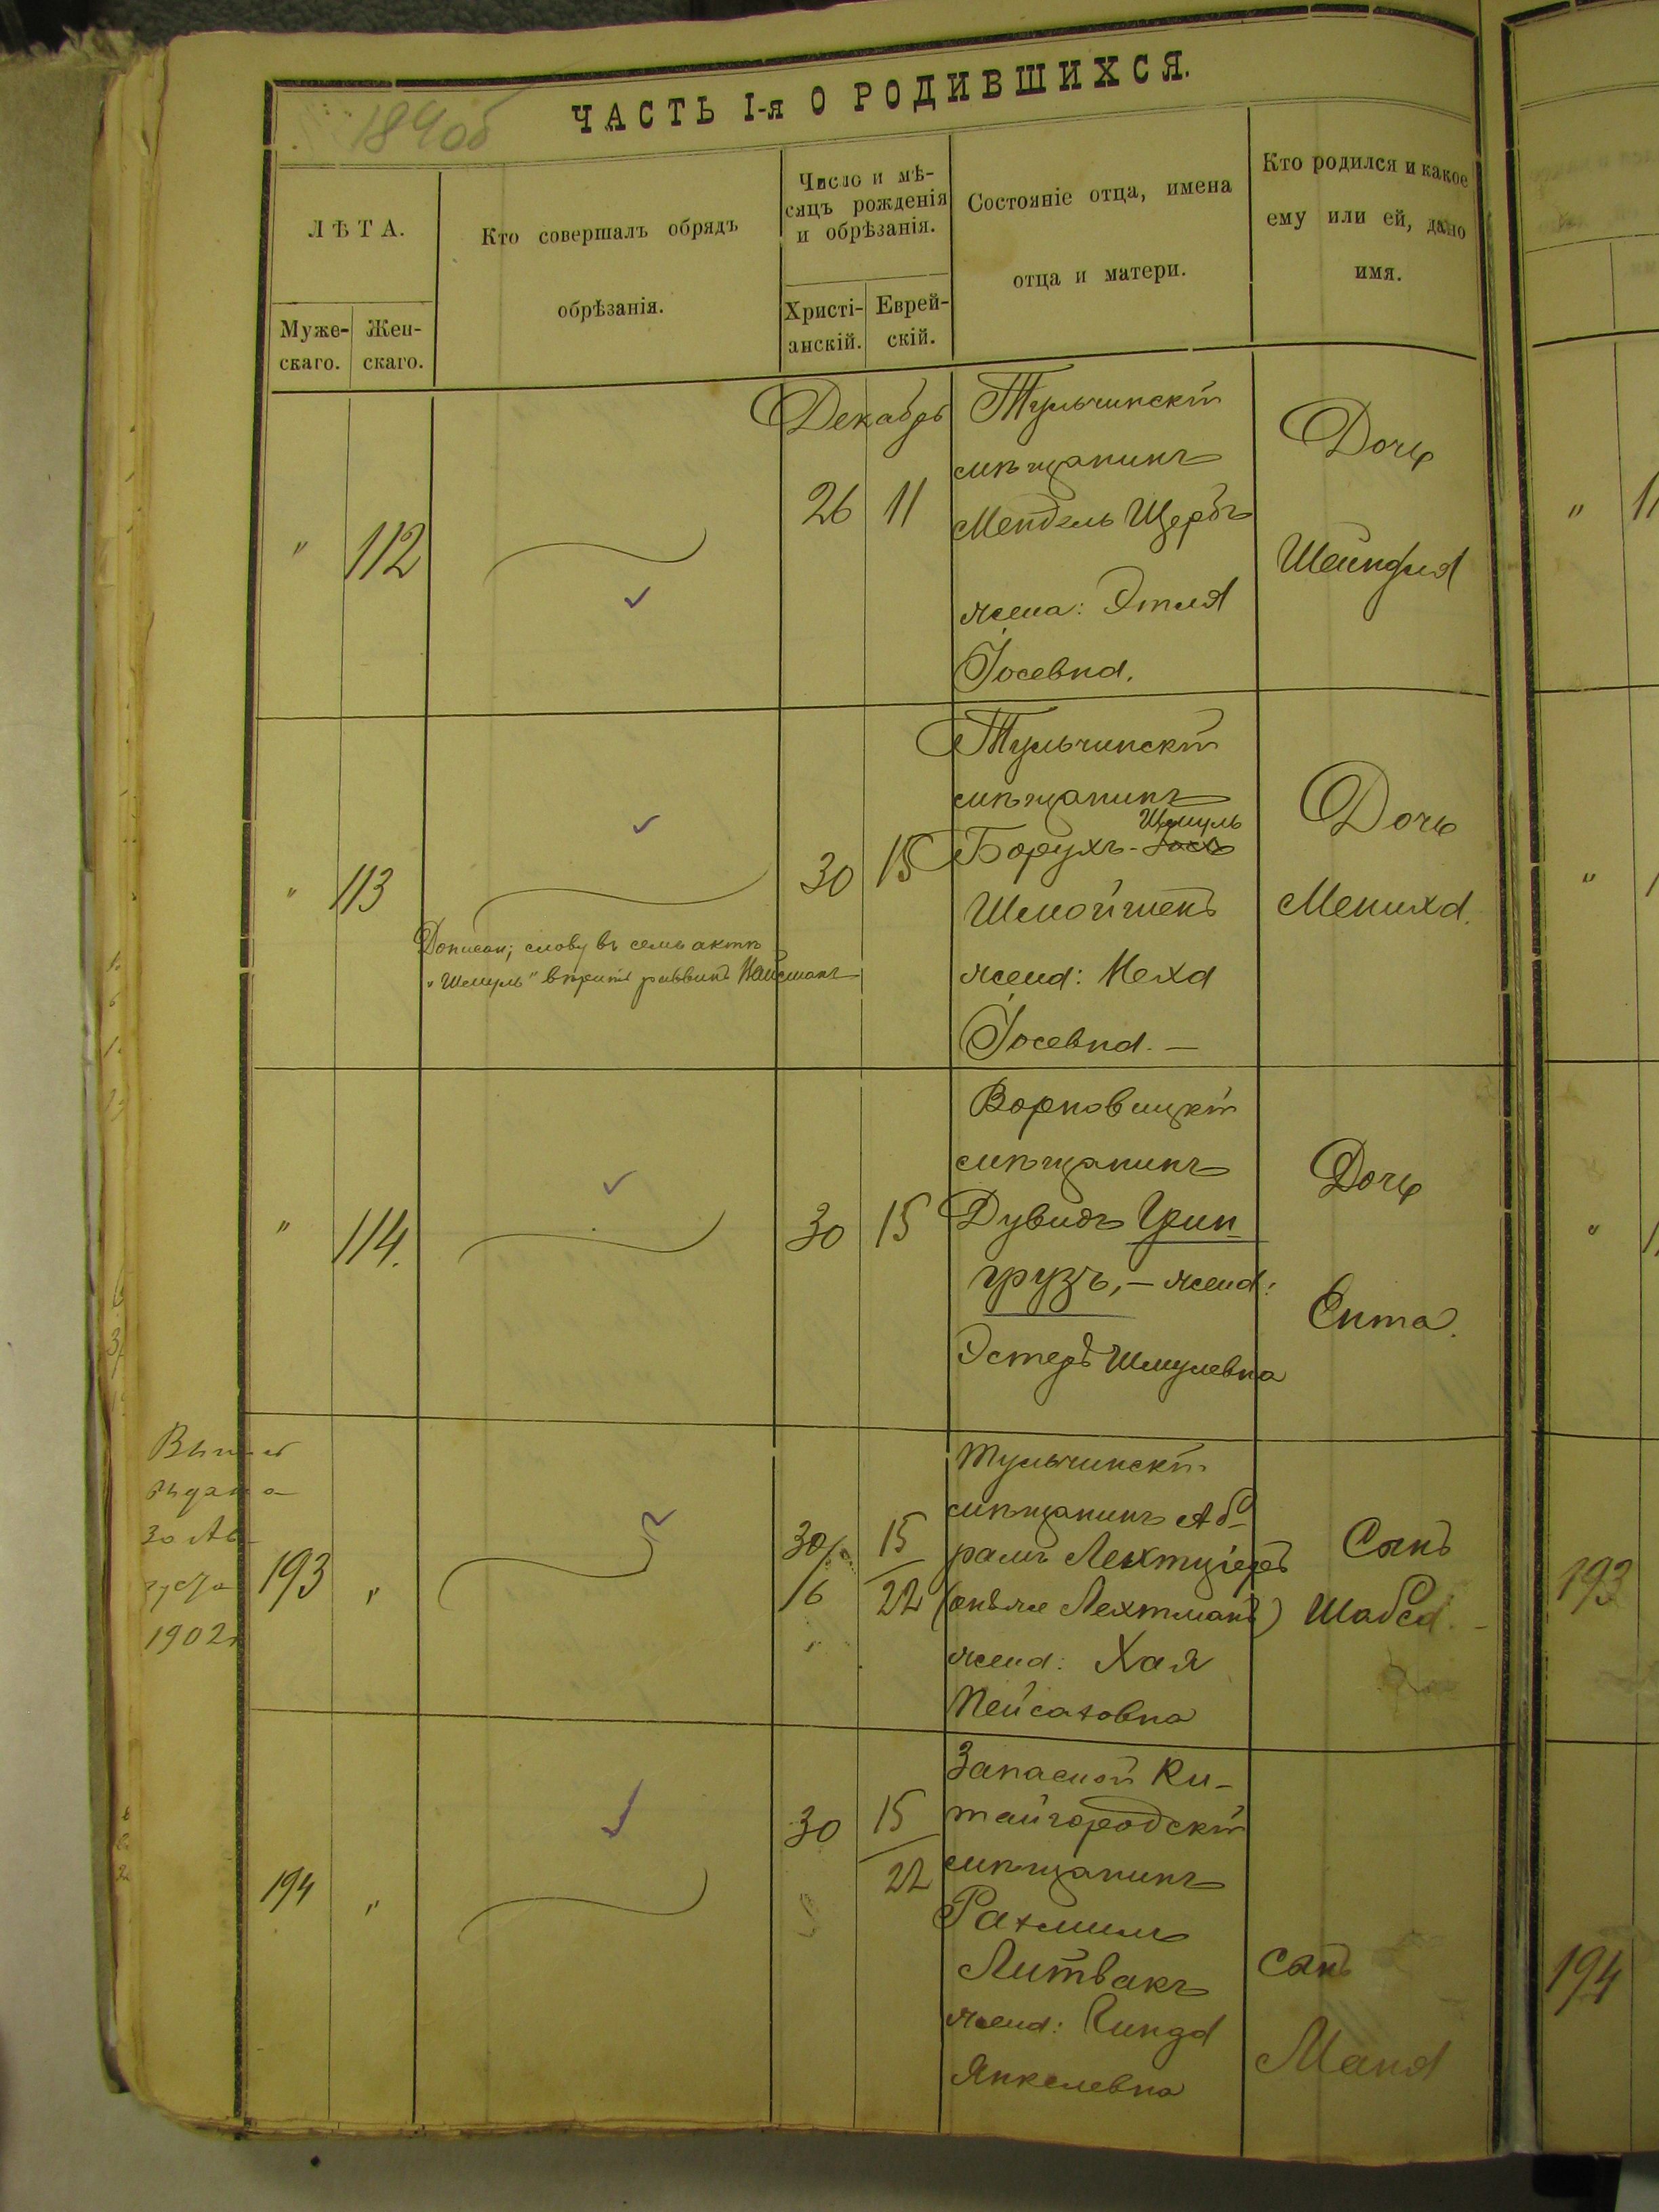 ЧАСТЬ I-я О РОДИВШИХСЯ.
ЛѢТА.
Муже-
скаго.
Жен-
скаго.
Кто совершалъ обрядъ
обрѣзанія.
Число и мѣ-
сяцъ рожденія
и обрѣзанія.
Христі-
анскій.
Еврей-
скій.
Состояніе отца, имена
отца и матери.
Кто родился и какое
ему или ей, дано
имя.
Декабрь
"
112
26
11
Тульчинскій
мѣщанинъ
Мендель Щербъ
жена: Этля
Іосевна.
Дочь
Шейндля
"
113
Дописан; слову въ семъ актѣ
"Шмуль" вѣрить раввинъ
30
15
Тульчинскій
мѣщанинъ
Шмуль
Борухъ-
Шмойшенъ
жена: Неха
Іосевна. —
Дочь
Мениха.
"
114.
30
15
мѣщанинъ
Дувидъ Грин-
грузъ, — жена:
Эстеръ Шмулевна
Дочь
Ента.
выдана
30 Ав-
густа
1902
193
"
30/
6
15
22
Тульчинскій
мѣщанинъ Аб-
рамъ Лехтціеръ
(онъ же Лехтманъ)
жена: Хая
Пейсаховна
Сынъ
Шабса. -
194
"
30
15
22
Запасной Ки-
тайгородскій
мѣщанинъ
Рахмиль
Литвакъ
жена:
Янкелевна
Сынъ
193
194